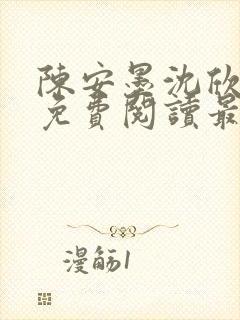 陳安墨沈欣
免費閱讀最
漫舫1